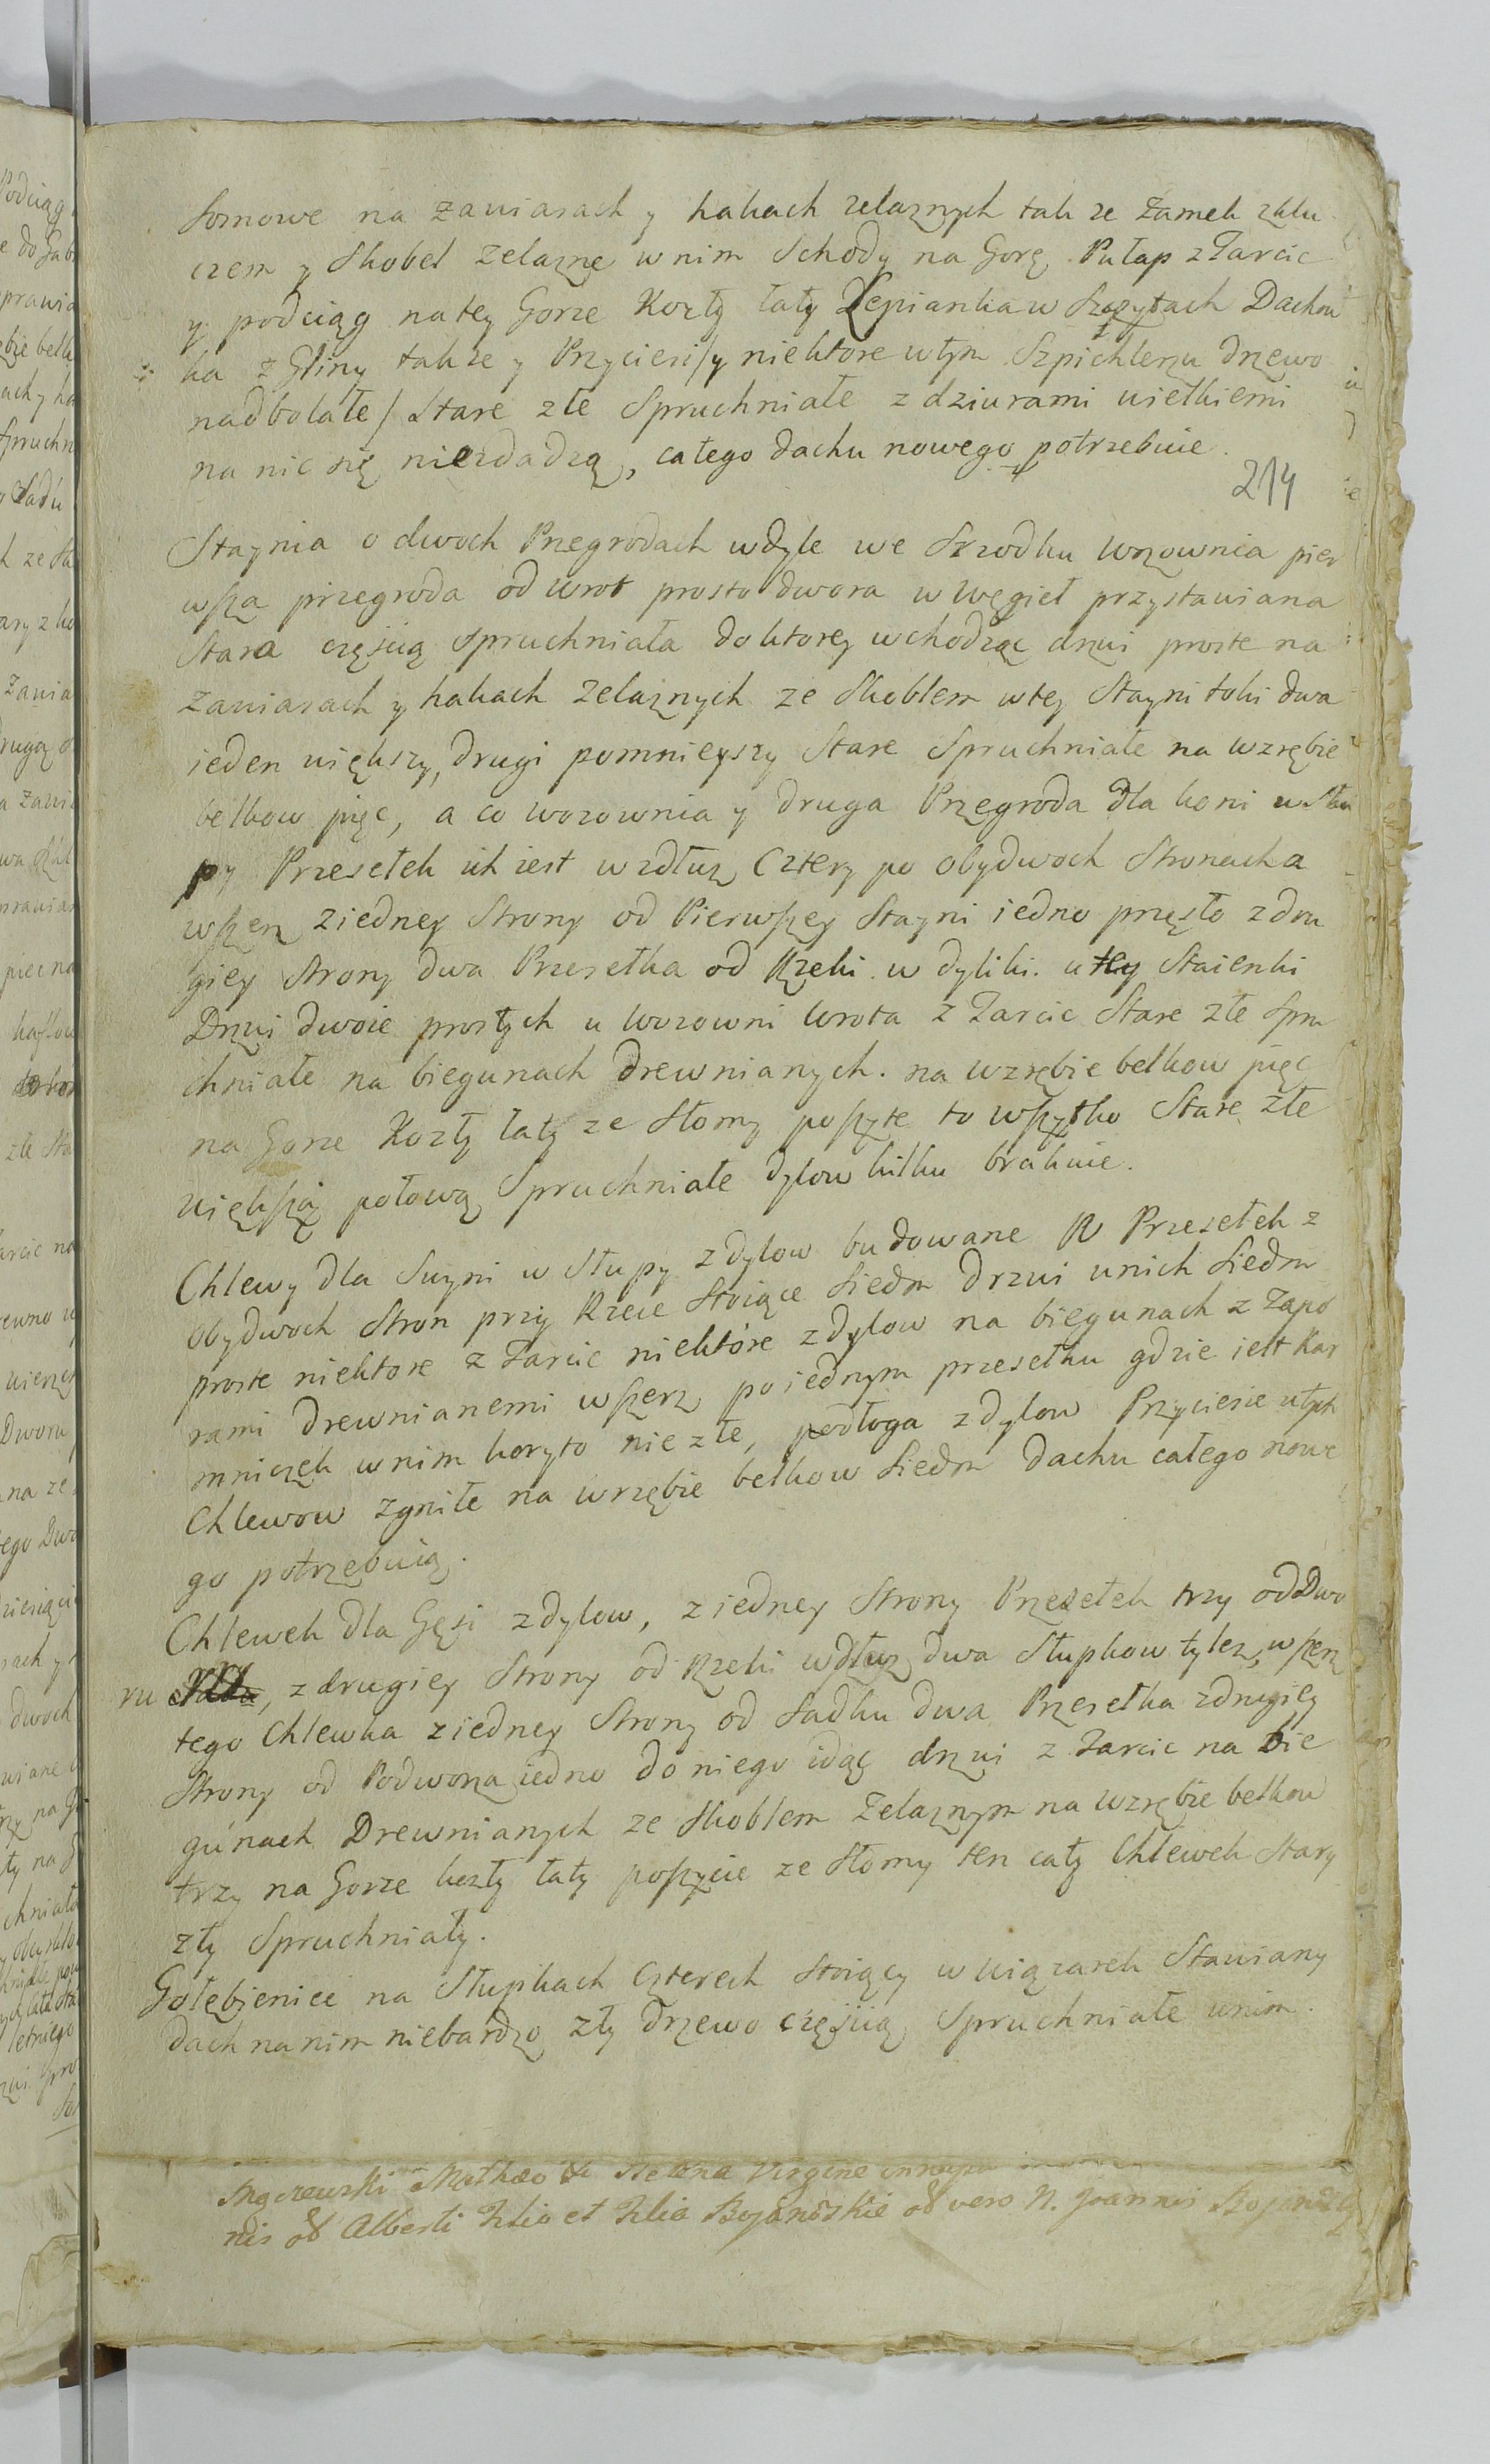 sosnowe na zawiasach y hakach zelaznych tak ze Zamek zklu
czem y Skobel zelazne w nim Schody na Gorę Pułap z Tarcic
y podciąg na tey Gorze Kozły łaty Lepianka w Szczytach Dachow
ka z Gliny takze y Przyciesi /y niektore w tym Szpichlerzu drzewo
nadbolałe/ Stare złe Spruchniałe z dziurami wielkiemi
na nic się niezdadzą, całego dachu nowego potrzebuie.
214
Staynia o dwoch Przegrodach w dyle we Srzodku Wozownia pier
wsza przegroda od wrot prosto dwora w węgieł przystawiana
Stara częścią Spruchniała do ktorey wchodząc drzwi proste na
zawiasach y hakach zelaznych ze Skoblem w tey Stayni żłobi dwa
ieden większy, drugi pomnieyszy Stare Spruchniałe na wzrębie
belkow pięc, a co wozownia y druga Przegroda dla koni w Słu
py Przesełek ich iest wzdłuz Cztery po obydwoch Stronach a
wszerz z iedney Strony od Pierwszey Stayni iedno pręsło z dru
giey Strony dwa Przesełka od Rzeki w dyliki. u tey Staienki
Drzwi dwoie prostych u Wozowni Wrota z Tarcic Stare złe Spru
chniałe na biegunach Drewnianych. na wzrębie belkow pięc
na Gorze Kozły łaty ze Słomy poszyte to wszytko Stare złe
większą połową Spruchniałe dylow kilku brakuie.
Chlewy dla Swyni w Słupy z dylow budowane Przesełek z
obydwoch Stron przy Rzece Stoiące Siedm Drzwi u nich Siedm
proste niektore z Tarcic niektóre z dylow na biegunach z Zapo
rami drewnianemi wszerz po iednym przesełku gdzie iest Kar
mniczek w nim koryto nie złe, podłoga z dylow Przyciesie u tych
Chlewow zgniłe na wrzębie belkow Siedm dachu całego nowe
go potrzebuią.
Chlewek dla Gęsi z dylow, z iedney Strony Przesełek trzy od Dwo
ru, z drugiey Strony od Rzeki wdłuz dwa Słupkow tylez, wszerz
tego Chlewka z iedney Strony od Sadku dwa Przesełka z drugiey
Strony od Podworza iedno do niego idąc drzwi z Tarcic na bie
gunach Drewnianych ze Skoblem Zelaznym na wzrębie belkow
trzy na Gorze kozły łaty poszycie ze Słomy ten cały Chlewek Stary
zły Spruchniały.
Gołębieniec na Słupikach Czterech Stoiący w wiązarek Stawiany
dach na nim niebardzo zły drzewo częścią Spruchniałe w nim.
Mathæo & Helena Virgine
nis Alberti Filio et Filia vero N. Joannis